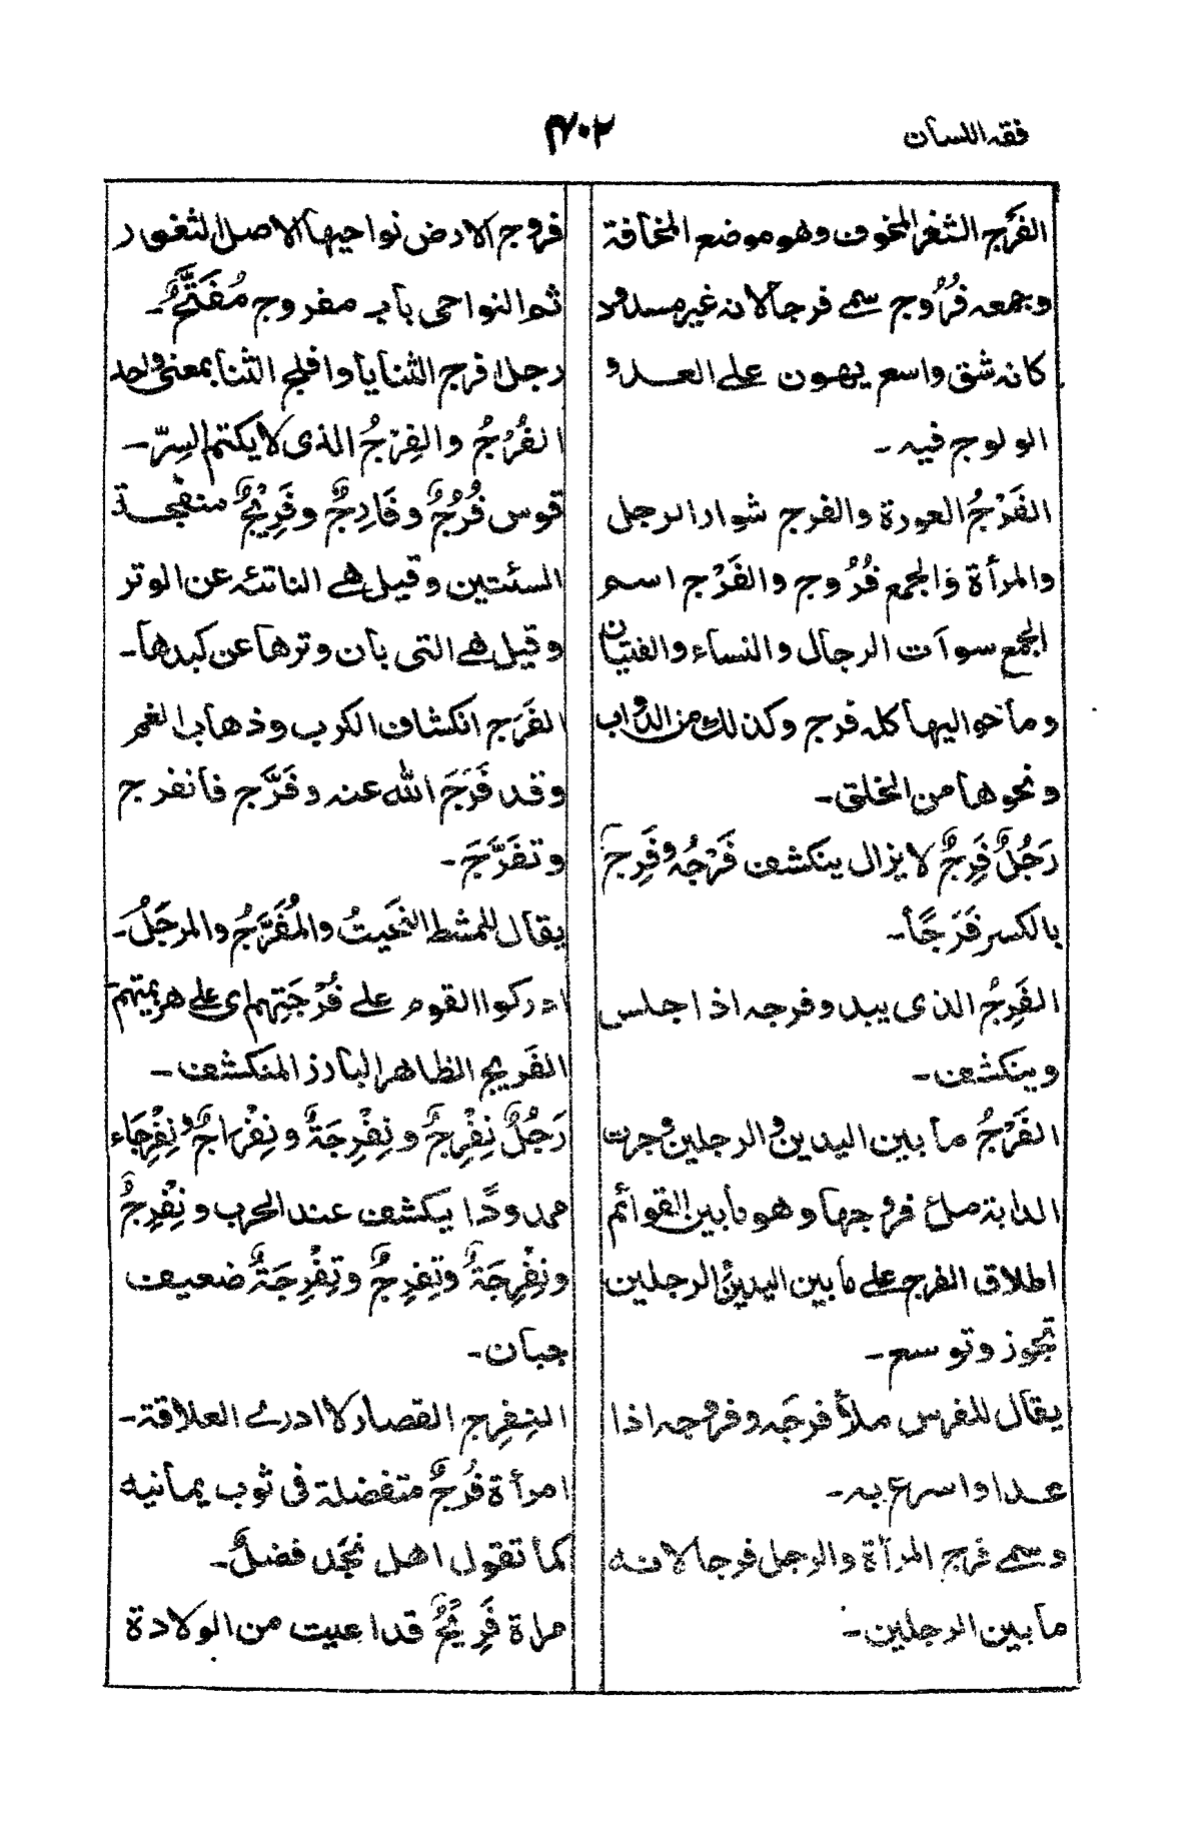 فقہ اللسان
۴۰۲
الفَرَج الثغر المخوف وهو موضع المخافة
وجمعه فُرُوج سمی فرجا لانه غیر مسدود
کانہ شق واسع یهون علی العدو
الولوج فیہ۔
الفَرْجُ العورة والفرج شوار الرجل
والمرأة والجمع فُرُوج والفَرْج اسم
الجمع سوآت الرجال والنساء والفتیان
وما حوالیها کلہ فرج وکذلک من الدواب
ونحوها من الخلق۔
رَجُلٌ فَرِجٌ لا یزال ینکشف فَرْجُہ وفَرِجَ
بالکسر فَرَجًا۔
الفَرِجُ الذی یبدو فرجہ اذا جلس
وینکشف۔
الفَرْجُ ما بین الیدین والرجلین وجرت
الدابة ملئ فروجها وهو مابین القوائم
اطلاق الفرج علی مابین الیدین والرجلین
تجوز وتوسع۔
یقال للفرس ملأ فرجَہ وفروجہ اذا
عدا واسرع بہ۔
وسمی فرج المرأة والرجل فرجا لانہ
ما بین الرجلین۔
فروج الارض نواحیها الاصل الثغور
ثم النواحی باب مفروج مُفَتَّحٌ۔
رجل افرج الثنایا وافلج الثنا بمعنی واحد
الفُرُجُ والفِرْجُ الذی لا یکتم السِرّ۔
قوس فُرُجٌ وفَارِجٌ وفَرِیْجٌ منفجة
السئتین وقیل هی الناتئہ عن الوتر
وقیل هی التی بان وترها عن کبدها۔
الفَرَج انکشاف الکرب وذهاب الغم
وقد فَرَجَ اللہ عنہ وفَرَّج فانفرج
وتفَرَّجَ۔
یقال للمشط النَحِیتُ والمُفَرَّجُ والمرجَلُ۔
ادرکوا القوم علی فُرْجَتِهم ای علی هزیمتهم
الفَریج الظاهر البارز المنکشف۔
رَجُلٌ نِفْرِجٌ ونِفْرِجَةٌ ونِفْرَاجٌ ونِفْرِجَاء
ممدودًا یکشف عند الحرب ونِفْرِجٌ
ونِفْرِجَةٌ وتِفرِجٌ وتِفْرِجَةٌ ضعیف
جبان۔
النِفرِج القصار لا ادری العلاقة۔
امرأة فُرُجٌ متفضلة فی ثوب یمانیہ
کما تقول اهل نَجْد فضلٌ۔
مراة فَرِیْجٌ قد اعیت من الولادة